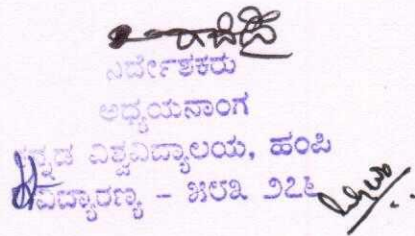 ನಿರ್ದೇಶಕರು
ಅಧ್ಯಯನಾಂಗ
ಕನ್ನಡ ವಿಶ್ವವಿದ್ಯಾಲಯ, ಹಂಪಿ
ವಿದ್ಯಾರಣ್ಯ – ೫೮೩ ೨೭೬